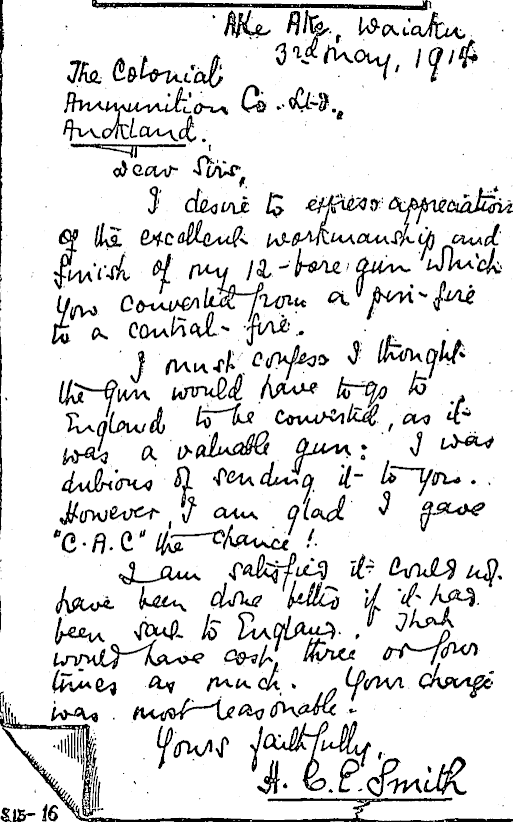 Ake Ake, Waiaku
3rd May, 1914
The Colonial
Ammunition Co. Ltd.,
Auckland.
Dear Sirs,
I desire to express appreciation
of the excellent workmanship and
finish of my 12-bore gun which
you converted from a pin-fire
to a central-fire.
I must confess I thought
the gun would have to go to
England to be converted, as it
was a valuable gun: I was
dubious of sending it to you.
However, I am glad I gave
"C.A.C" the chance!
I am satisfied it could not
have been done better if it had
been sent to England. That
would have cost three or four
times as much. Your charge
was most reasonable.
Yours faithfully,
H. C. E. Smith
S.15-16